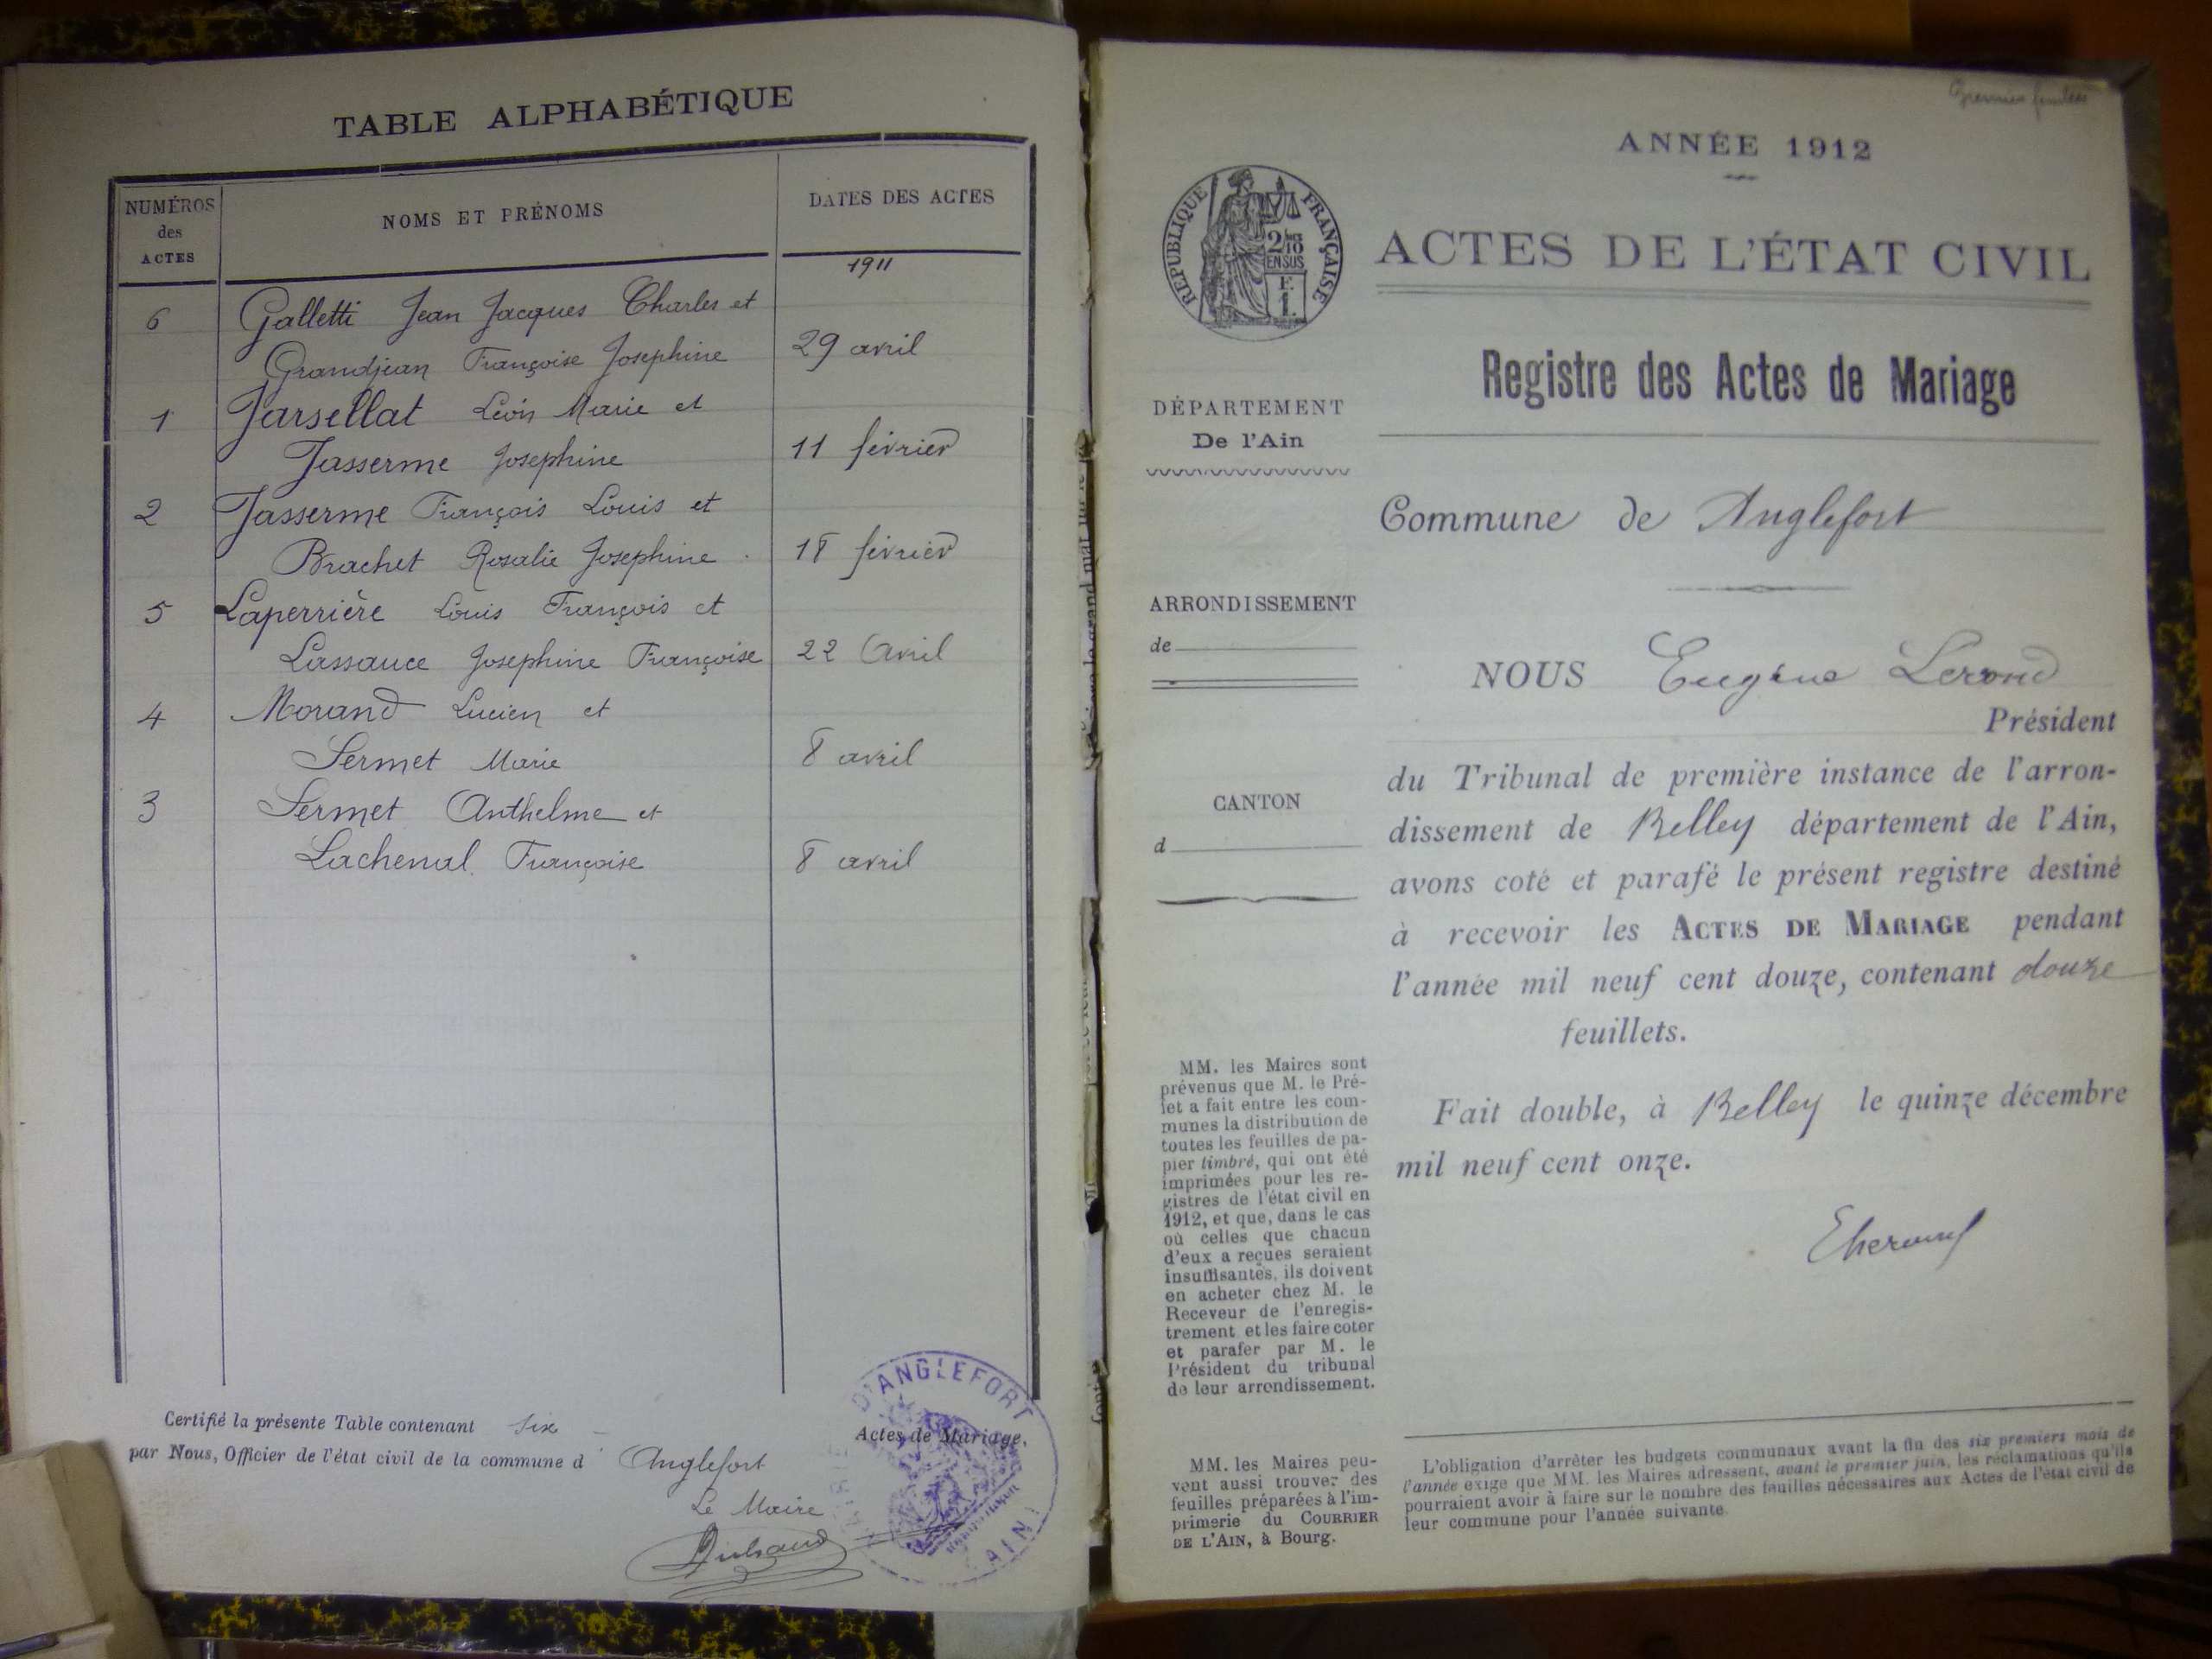 TABLE ALPHABÉTIQUE
NUMÉROS
des
ACTES
NOMS ET PRÉNOMS
DATES DES ACTES
1911
6 Galletti Jean Jacques Charles et
Grandjean Françoise Josephine 29 avril
1 Jarsellat Léon Marie et
Jasserme Josephine 11 février
2 Jasserme François Louis et
Brachet Rosalie Josephine 18 février
5 Laperrière Louis François et
Lassauce Josephine Françoise 22 Avril
4 Morand Lucien et
Sermet Marie 8 avril
3 Sermet Anthelme et
Lachenal Françoise 8 avril
Certifié la présente Table contenant six Actes de Mariage.
par Nous, Officier de l'état civil de la commune d' Anglefort
Le Maire
D'ANGLEFORT
AIN
Premier feuillet
ANNÉE 1912
RÉPUBLIQUE FRANÇAISE
2/10
EN SUS
F.
1.
ACTES DE L'ÉTAT CIVIL
Registre des Actes de Mariage
DÉPARTEMENT
De l'Ain
Commune de Anglefort
ARRONDISSEMENT
de
NOUS Eugène Lerond
Président
CANTON
d
du Tribunal de première instance de l'arron-
dissement de Belley département de l'Ain,
avons coté et parafé le présent registre destiné
à recevoir les ACTES DE MARIAGE pendant
l'année mil neuf cent douze, contenant douze
feuillets.
Fait double, à Belley le quinze décembre
mil neuf cent onze.
MM. les Maires sont
prévenus que M. le Pré-
fet a fait entre les com-
munes la distribution de
toutes les feuilles de pa-
pier timbré, qui ont été
imprimées pour les re-
gistres de l'état civil en
1912, et que, dans le cas
où celles que chacun
d'eux a reçues seraient
insuffisantes, ils doivent
en acheter chez M. le
Receveur de l'enregis-
trement et les faire coter
et parafer par M. le
Président du tribunal
de leur arrondissement.
MM. les Maires peu-
vent aussi trouver des
feuilles préparées à l'im-
primerie du COURRIER
DE L'AIN, à Bourg.
L'obligation d'arrêter les budgets communaux avant la fin des six premiers mois de
l'année exige que MM. les Maires adressent, avant le premier juin, les réclamations qu'ils
pourraient avoir à faire sur le nombre des feuilles nécessaires aux Actes de l'état civil de
leur commune pour l'année suivante.